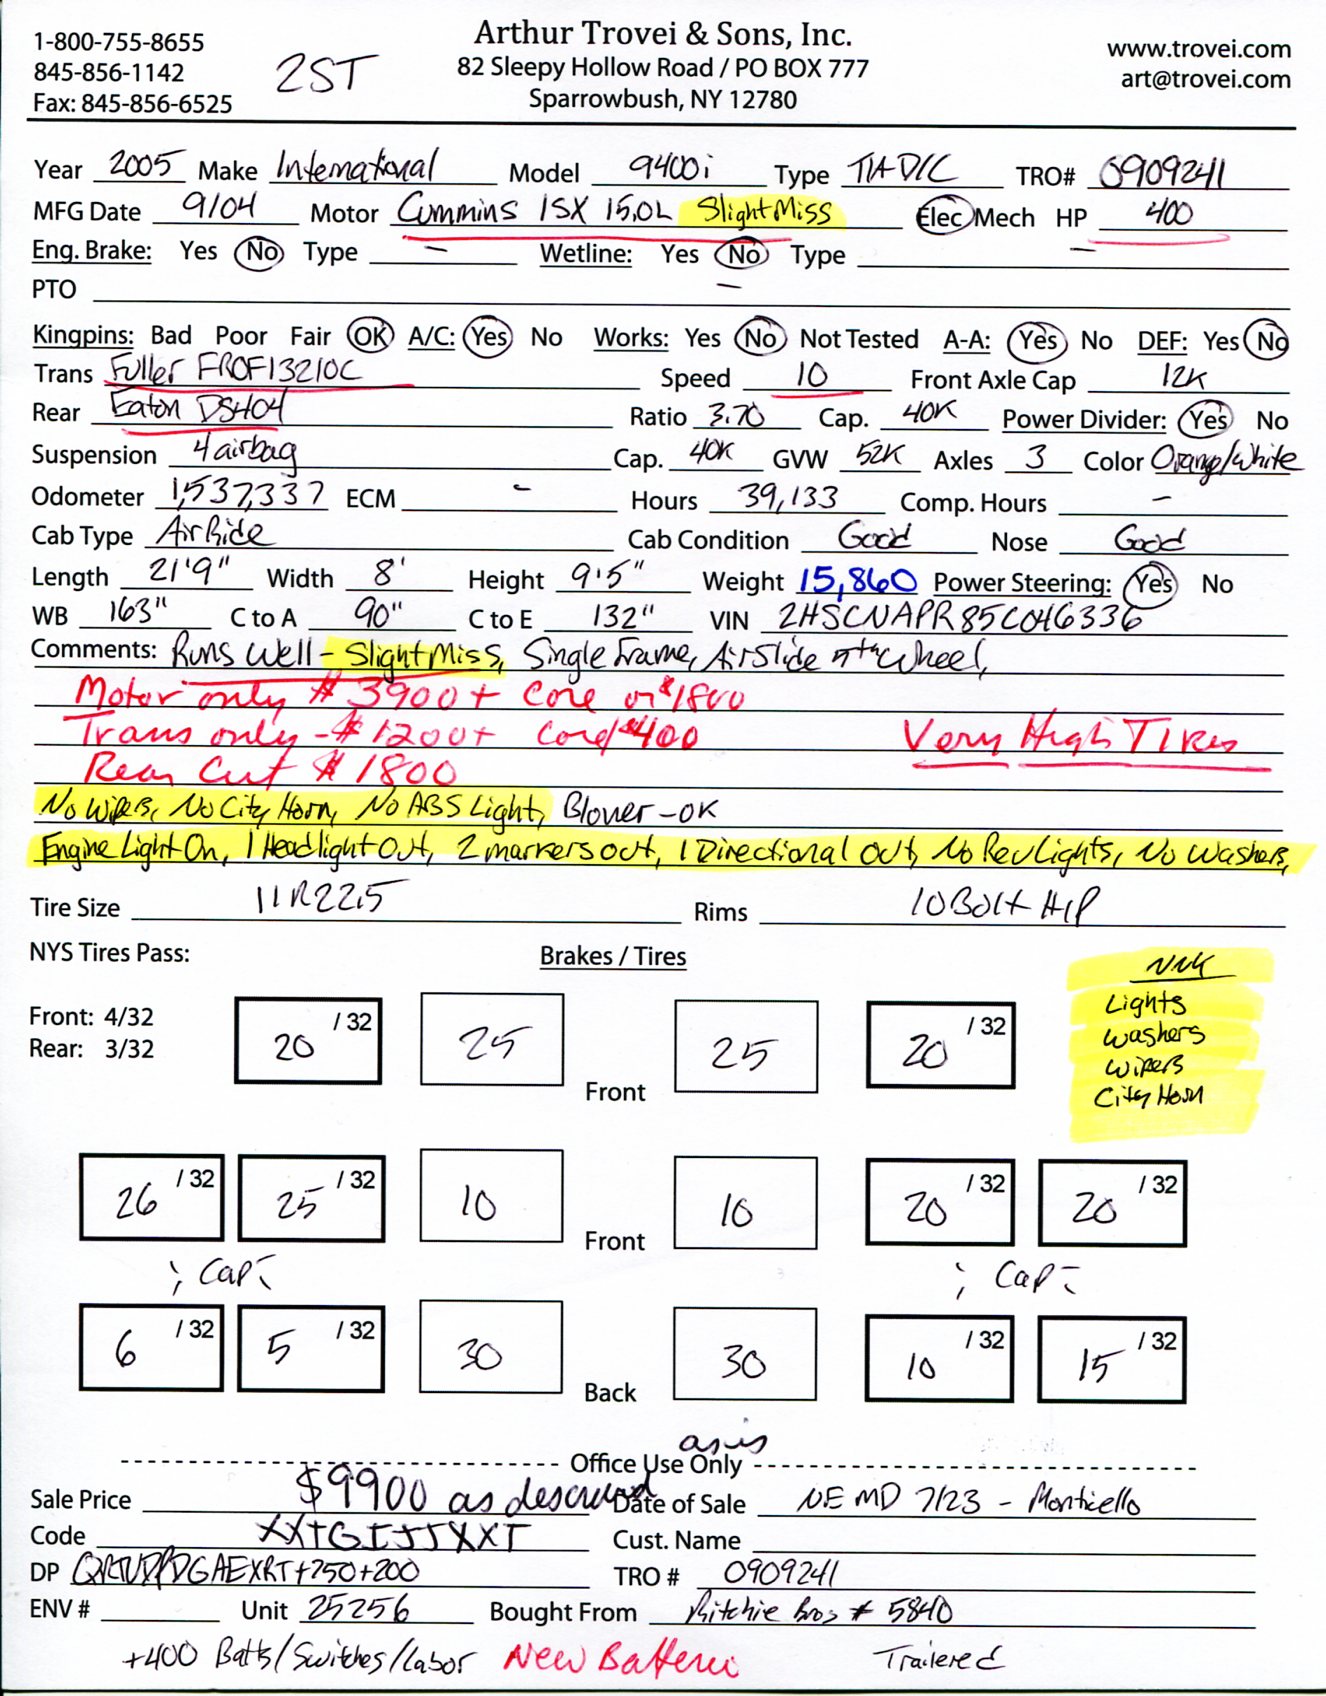 1-800-755-8655
845-856-1142
Fax: 845-856-6525
2ST
Arthur Trovei & Sons, Inc.
82 Sleepy Hollow Road / PO BOX 777
Sparrowbush, NY 12780
www.trovei.com
art@trovei.com
Year 2005 Make International Model 9400i Type T/A D/C TRO# 0909241
MFG Date 9/04 Motor Cummins ISX 15.0L Slight Miss Elec Mech HP 400
Eng. Brake: Yes No Type – Wetline: Yes No Type –
PTO –
Kingpins: Bad Poor Fair OK A/C: Yes No Works: Yes No Not Tested A-A: Yes No DEF: Yes No
Trans Fuller FROF13210C Speed 10 Front Axle Cap 12K
Rear Eaton DS404 Ratio 3.70 Cap. 40K Power Divider: Yes No
Suspension 4 airbag Cap. 40K GVW 52K Axles 3 Color Orange/White
Odometer 1,537,337 ECM – Hours 39,133 Comp. Hours –
Cab Type Air Ride Cab Condition Good Nose Good
Length 21'9" Width 8' Height 9'5" Weight 15,860 Power Steering: Yes No
WB 163" C to A 90" C to E 132" VIN 2HSCNAPR85C046336
Comments: Runs Well - Slight Miss, Single Frame, Air Slide 5th Wheel,
Motor only $3900 + Core or $1800
Trans only - $1200 + Core $400 Very High Tires
Rear Cut $1800
No Wipers, No City Horn, No ABS Light, Blower - OK
Engine Light On, 1 Headlight Out, 2 markers out, 1 Directional Out, No Rev Lights, No Washers,
Tire Size 11R22.5 Rims 10 Bolt H/P
NYS Tires Pass: Brakes / Tires
Front: 4/32
Rear: 3/32
20 /32 25 Front 25 20 /32
Lights
Washers
Wipers
City Horn
26 /32 25 /32 10 Front 10 20 /32 20 /32
; Cap - ; Cap -
6 /32 5 /32 30 Back 30 10 /32 15 /32
as is
Office Use Only
Sale Price $9900 as described Date of Sale NE MD 7/23 - Monticello
Code XXTGIJJJXXT Cust. Name
DP +750+200 TRO # 0909241
ENV # Unit 25256 Bought From Ritchie Bros # 5840
+400 Batts/Switches/Labor New Batteries Trailered